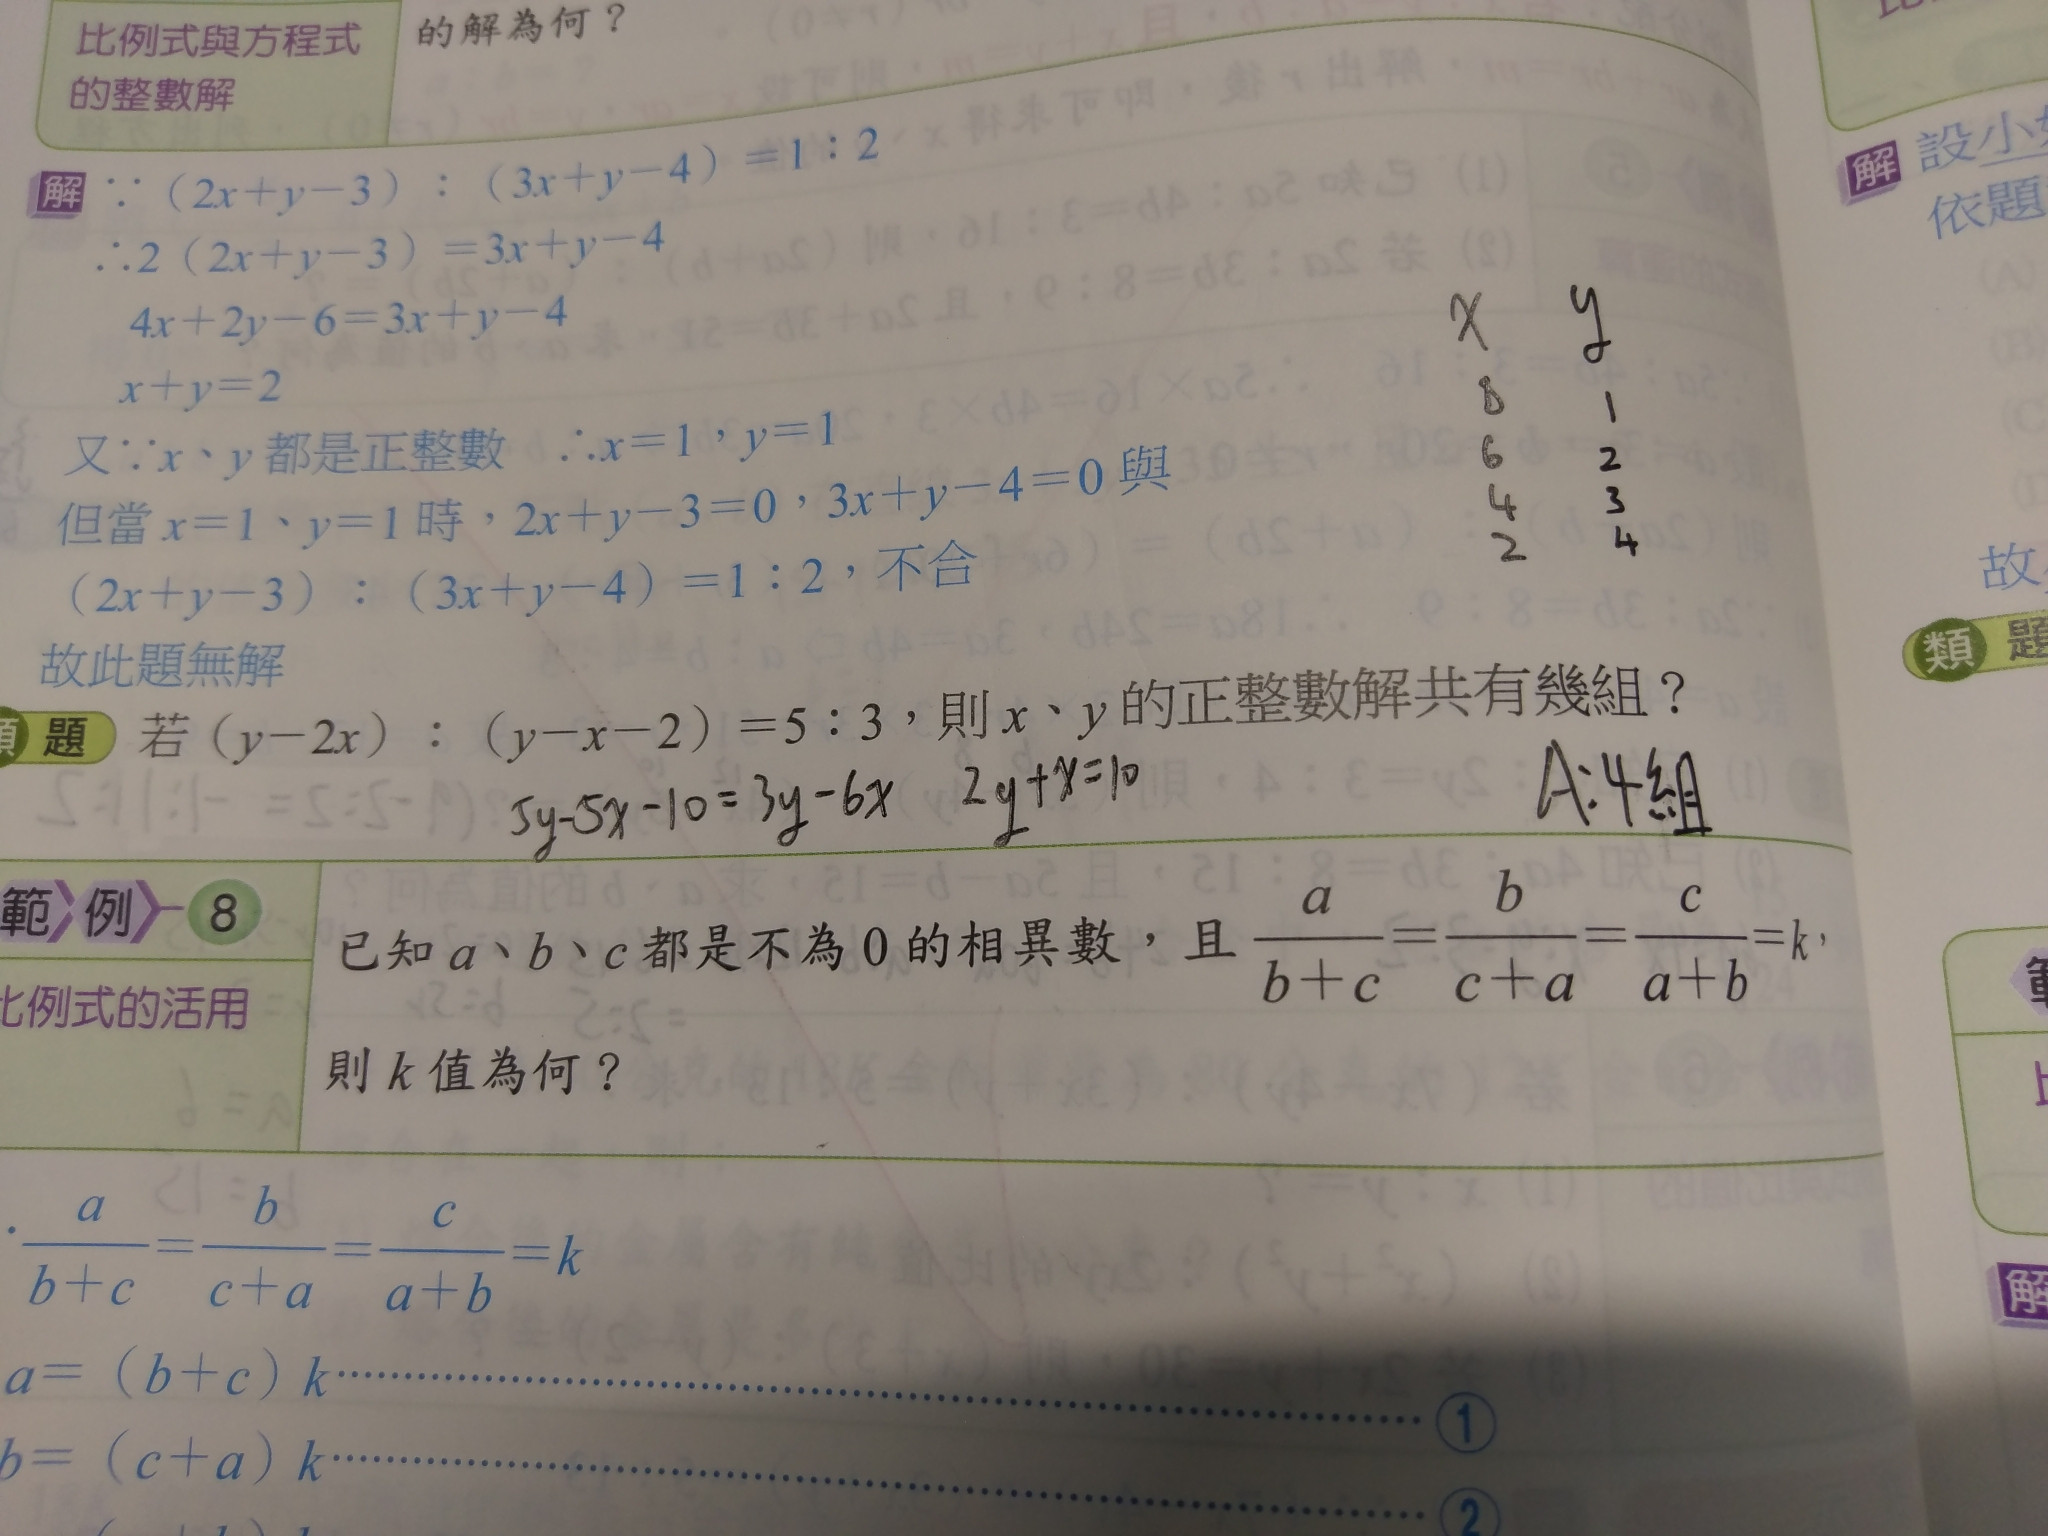 比例式與方程式
的整數解
的解為何？
解 ∵（2x＋y－3）：（3x＋y－4）＝1：2
∴2（2x＋y－3）＝3x＋y－4
4x＋2y－6＝3x＋y－4
x＋y＝2
又∵x、y都是正整數 ∴x＝1，y＝1
但當x＝1、y＝1時，2x＋y－3＝0，3x＋y－4＝0與
（2x＋y－3）：（3x＋y－4）＝1：2，不合
故此題無解
x y
8 1
6 2
4 3
2 4
類題 若（y－2x）：（y－x－2）＝5：3，則x、y的正整數解共有幾組？
5y-5x-10=3y-6x 2y+x=10
A:4組
範例 8
比例式的活用
已知a、b、c都是不為0的相異數，且 a/(b＋c)＝b/(c＋a)＝c/(a＋b)＝k，
則k值為何？
a/(b＋c)＝b/(c＋a)＝c/(a＋b)＝k
a＝（b＋c）k…………①
b＝（c＋a）k…………②
解 設小
依題
故
類題
解